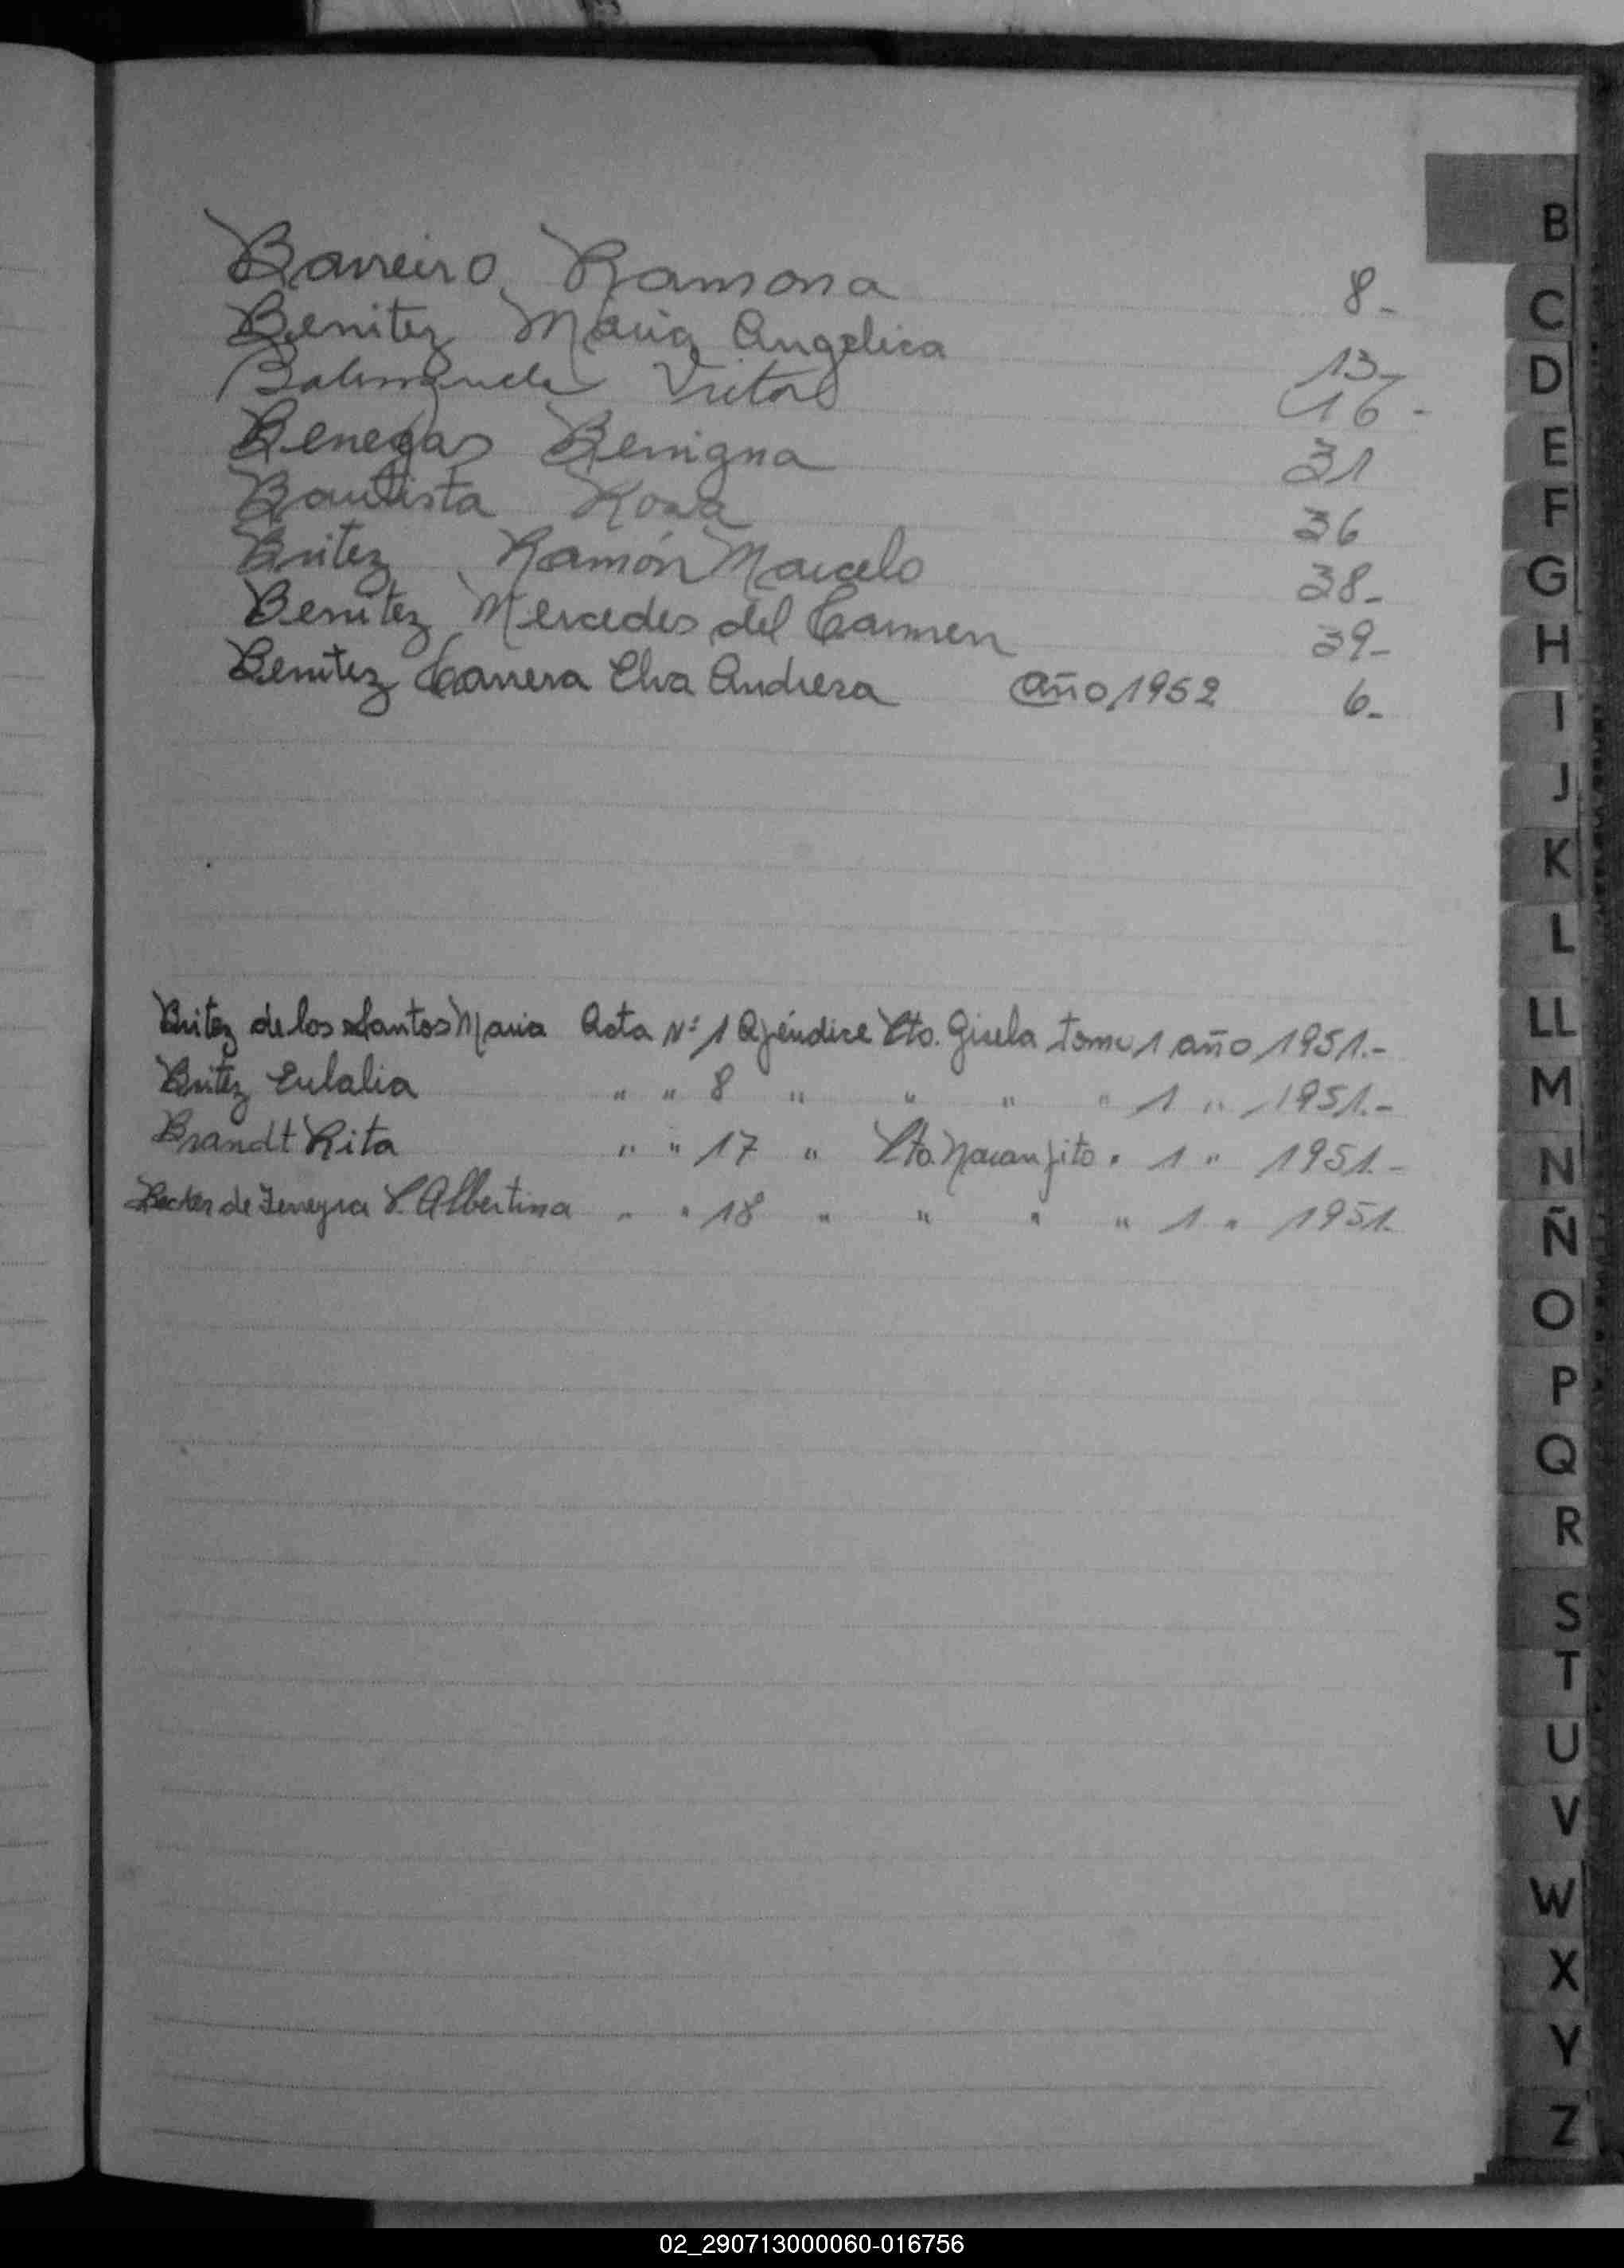 Barreiro, Ramona 8-
Benitez Maria Angelica 13-
Balenzuela Victor 16-
Benegas Benigna 31
Bautista Rosa 36
Britez Ramón Marcelo 38-
Benitez Mercedes del Carmen 39-
Benitez Carrera Elva Andresa año 1952 6-
Britez de los Santos Maria Acta Nº 1 Apéndice Pto. Gisela tomo 1 año 1951.-
Britez Eulalia " " 8 " " " " 1 " 1951.-
Brandt Rita " " 17 " Pto. Naranjito " 1 " 1951.-
de Albertina " " 18 " " " " 1 " 1951.
B
C
D
E
F
G
H
I
J
K
L
LL
M
N
Ñ
O
P
Q
R
S
T
U
V
W
X
Y
Z
02_290713000060-016756